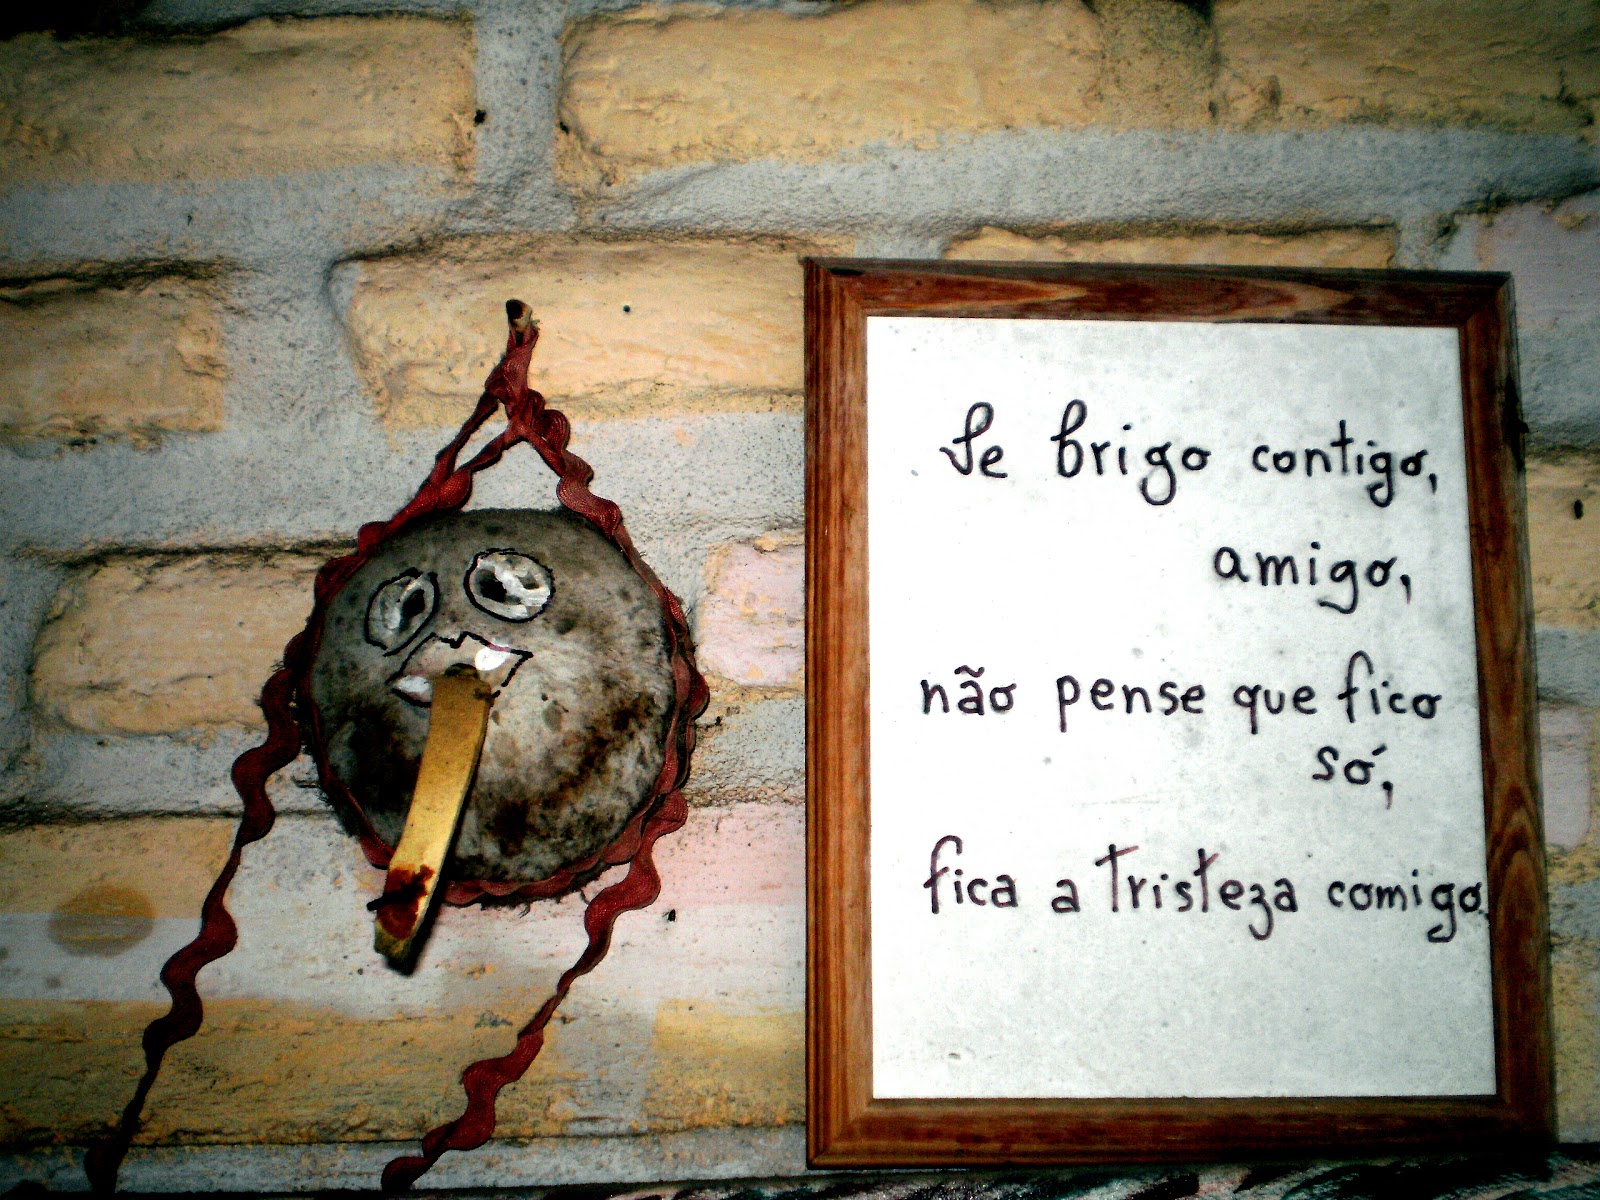 Se brigo contigo,
amigo,
não pense que fico
só,
fica a tristeza comigo.